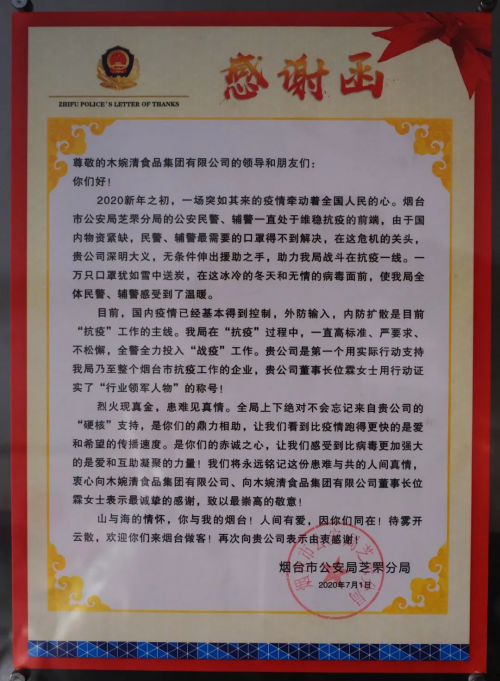 感谢函
ZHIFU POLICE'S LETTER OF THANKS
尊敬的木婉清食品集团有限公司的领导和朋友们：
你们好！
2020新年之初，一场突如其来的疫情牵动着全国人民的心。烟台
市公安局芝罘分局的公安民警、辅警一直处于维稳抗疫的前端，由于国
内物资紧缺，民警、辅警最需要的口罩得不到解决，在这危机的关头，
贵公司深明大义，无条件伸出援助之手，助力我局战斗在抗疫一线。一
万只口罩犹如雪中送炭，在这冰冷的冬天和无情的病毒面前，使我局全
体民警、辅警感受到了温暖。
目前，国内疫情已经基本得到控制，外防输入，内防扩散是目前
“抗疫”工作的主线。我局在“抗疫”过程中，一直高标准、严要求、
不松懈，全警全力投入“战疫”工作。贵公司是第一个用实际行动支持
我局乃至整个烟台市抗疫工作的企业，贵公司董事长位霖女士用行动证
实了“行业领军人物”的称号！
烈火现真金，患难见真情。全局上下绝对不会忘记来自贵公司的
“硬核”支持，是你们的鼎力相助，让我们看到比疫情跑得更快的是爱
和希望的传播速度。是你们的赤诚之心，让我们感受到比病毒更加强大
的是爱和互助凝聚的力量！我们将永远铭记这份患难与共的人间真情，
衷心向木婉清食品集团有限公司、向木婉清食品集团有限公司董事长位
霖女士表示最诚挚的感谢，致以最崇高的敬意！
山与海的情怀，你与我的烟台！人间有爱，因你们同在！待雾开
云散，欢迎你们来烟台做客！再次向贵公司表示由衷感谢！
烟台市公安局芝罘分局
2020年7月1日